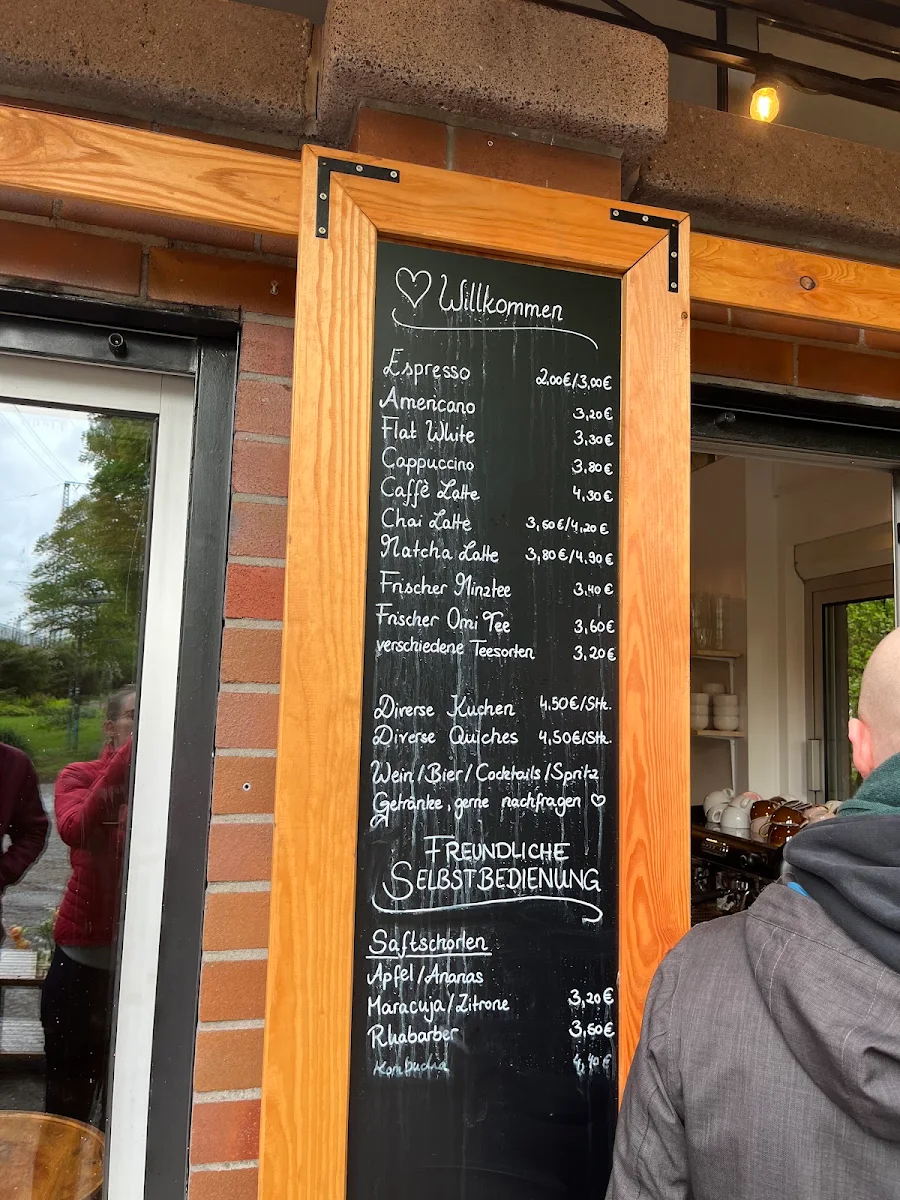 Willkommen
Espresso 2,00€/3,00€
Americano 3,20€
Flat White 3,30€
Cappuccino 3,80€
Caffè Latte 4,30€
Chai Latte 3,60€/4,20€
Matcha Latte 3,80€/4,90€
Frischer Minztee 3,40€
Frischer Omi Tee 3,60€
verschiedene Teesorten 3,20€
Diverse Kuchen 4.50€/Stk.
Diverse Quiches 4,50€/Stk.
Wein/Bier/Cocktails/Spritz
Getränke, gerne nachfragen
FREUNDLICHE
SELBSTBEDIENUNG
Saftschorlen
Apfel/Ananas
Maracuja/Zitrone 3,20€
Rhabarber 3,60€
Kombucha 4,40€